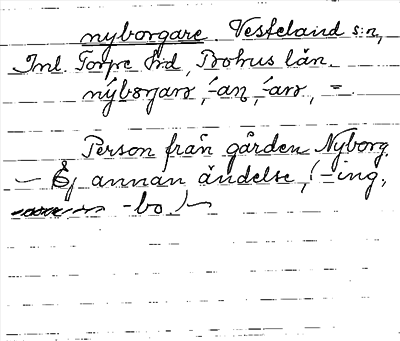 nyborgare. Västerland s:n,
Inl. Torpe hd, Bohus län.
nýbǫrjarə, ´-an, ´-arə, =.
Person från gården Nyborg.
— Ej annan ändelse, (-ing,
-bo.) —